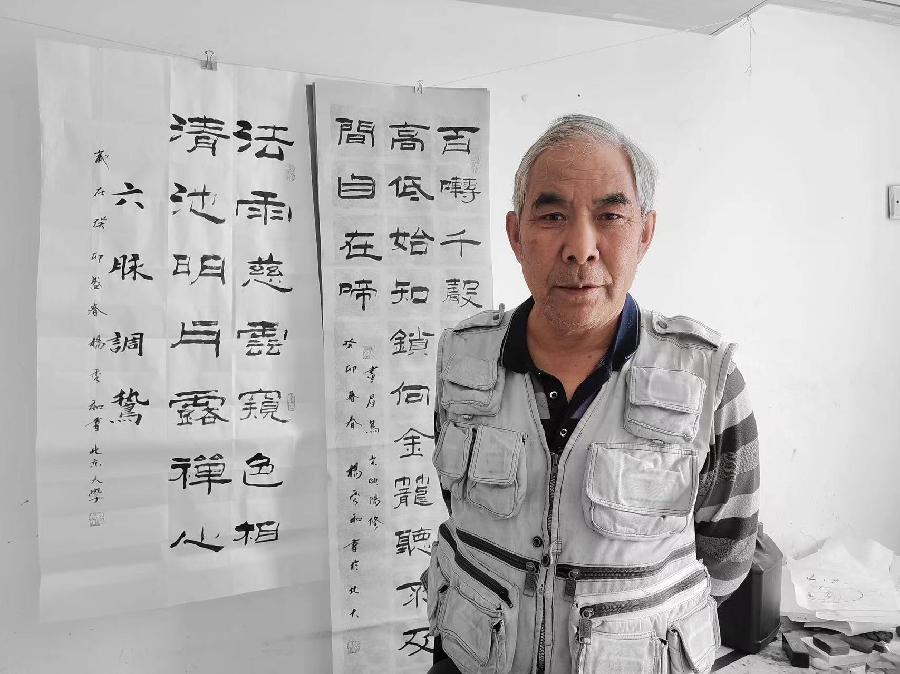 百囀千聲
高低始知鎖向金籠聽不及
間自在啼
畫眉鳥 宋歐陽修
癸卯年春 楊和書於北大
法雨慈雲窺色相
清池明月露禪心
六脉調
歲在癸卯盛春楊和書北京大學